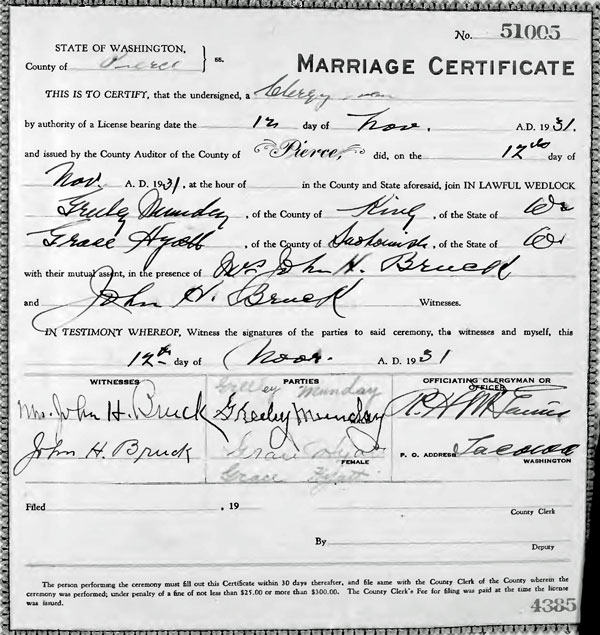 No. 51005
STATE OF WASHINGTON,
County of Pierce } ss.
MARRIAGE CERTIFICATE
THIS IS TO CERTIFY, that the undersigned, a Clergyman
by authority of a License bearing date the 12 day of Nov. A.D. 1931.
and issued by the County Auditor of the County of Pierce, did, on the 12th day of
Nov. A. D. 1931, at the hour of in the County and State aforesaid, join IN LAWFUL WEDLOCK
Greeley Munday, of the County of King, of the State of Wn
Grace Hyatt, of the County of, of the State of Wn
with their mutual assent, in the presence of Mrs John H. Bruck
and John H. Bruck Witnesses.
IN TESTIMONY WHEREOF, Witness the signatures of the parties to said ceremony, the witnesses and myself, this
12th day of Nov. A. D. 1931
WITNESSES PARTIES OFFICIATING CLERGYMAN OR OFFICER
Greeley Munday
Mrs. John H. Bruck Greeley Munday R. H.
John H. Bruck Grace Hyatt P. O. ADDRESS Tacoma
FEMALE WASHINGTON
Grace Hyatt
Filed , 19
County Clerk
By
Deputy
The person performing the ceremony must fill out this Certificate within 30 days thereafter, and file same with the County Clerk of the County wherein the
ceremony was performed; under penalty of a fine of not less than $25.00 or more than $300.00. The County Clerk's Fee for filing was paid at the time the license
was issued.
4385